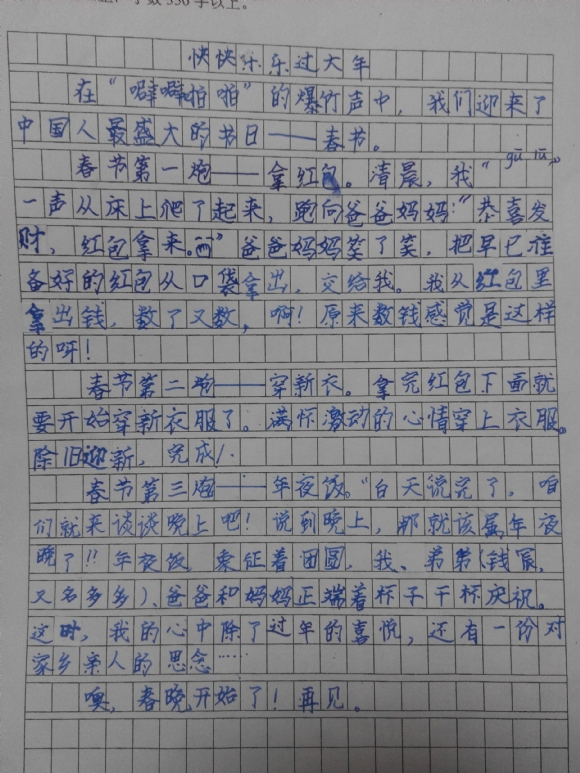 字数550字以上。
快快乐乐过大年
在“噼噼啪啪”的爆竹声中，我们迎来了
中国人最盛大的节日——春节。
春节第一炮——拿红包。清晨，我“gū lū”
一声从床上爬了起来，跑向爸爸妈妈：“恭喜发
财，红包拿来。”爸爸妈妈笑了笑，把早已准
备好的红包从口袋拿出，交给我。我从红包里
拿出钱，数了又数，啊！原来数钱感觉是这样
的呀！
春节第二炮——穿新衣。拿完红包下面就
要开始穿新衣服了。满怀激动的心情穿上衣服。
除旧迎新，完成！
春节第三炮——年夜饭。“白天说完了，咱
们就来谈谈晚上吧！说到晚上，那就该属年夜
晚了！！年夜饭 象征着团圆，我、弟弟（钱宸，
又名多多）、爸爸和妈妈正端着杯子干杯庆祝。
这时，我的心中除了过年的喜悦，还有一份对
家乡亲人的思念……
噢，春晚开始了！再见。